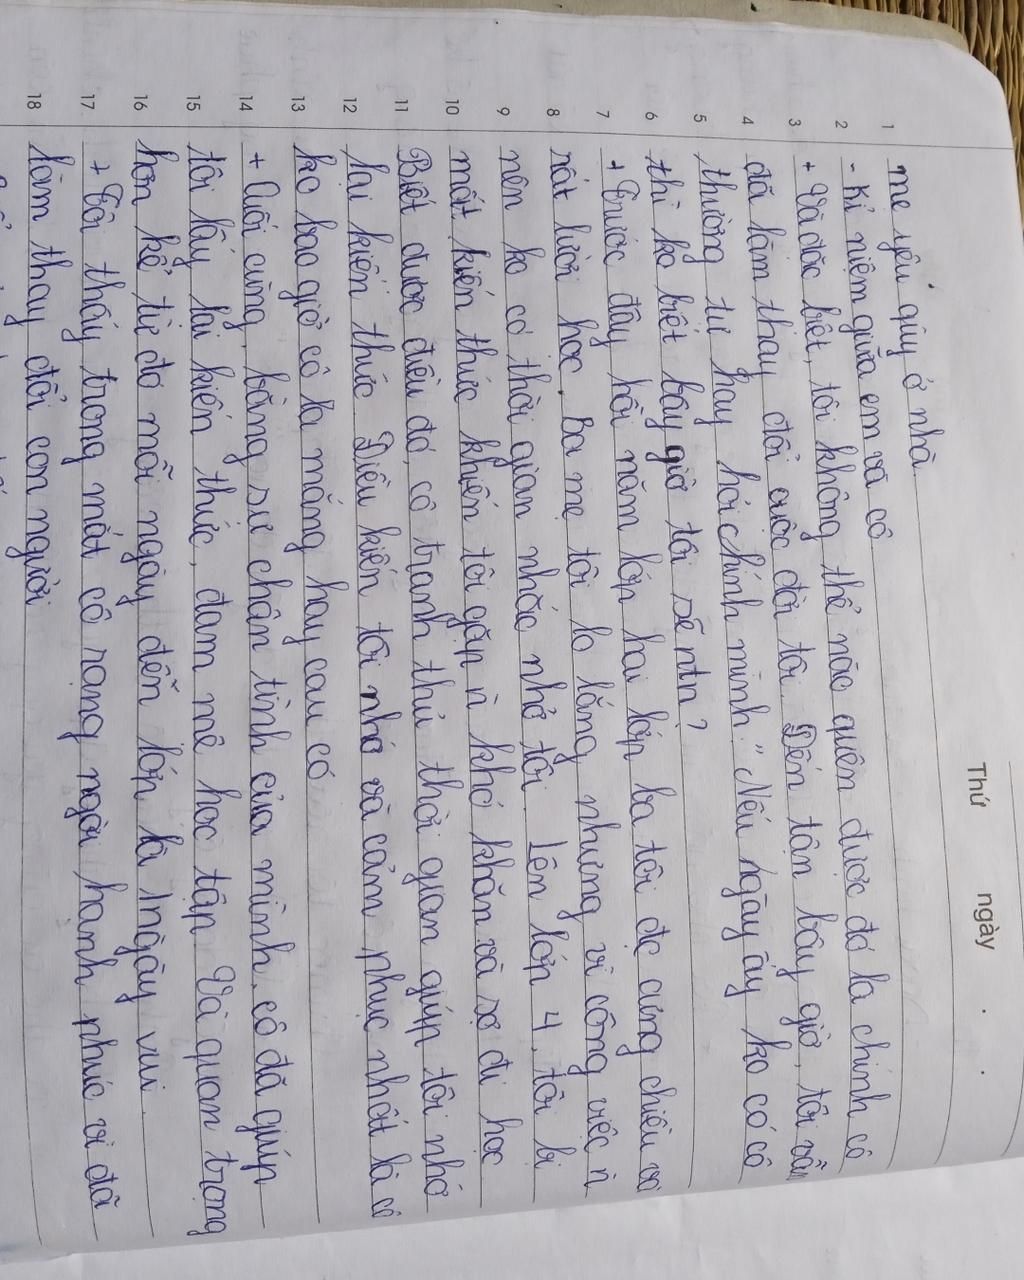 Thứ ngày . .
mẹ yêu qúy ở nhà.
1
- Kỉ niệm giữa em và cô
2
+ Và đặc biệt, tôi không thể nào quên được đó là chính cô
3
đã làm thay đổi cuộc đời tôi. Đến tận bây giờ, tôi vẫn
4
thường tự hay hỏi chính mình: " Nếu ngày ấy ko có cô
5
thì ko biết bây giờ tôi sẽ ntn?
6
+ Trước đây hồi năm lớp hai lớp ba tôi đc cưng chiều và
7
rất lười học. Ba mẹ tôi lo lắng nhưng vì công việc n
8
nên ko có thời gian nhắc nhở tôi. Lên lớp 4, tôi bị
9
mất kiến thức khiến tôi gặp n khó khăn và sợ đi học
10
Biết được điều đó, cô tranh thủ thời gian giúp tôi nhớ
11
lại kiến thức. Điều kiến tôi nhớ và cảm phục nhất là cô
12
ko bao giờ cô la mắng hay cau có
13
+ Cuối cùng, bằng sự chân tình của mình, cô đã giúp
14
tôi lấy lại kiến thức, đam mê học tập. Và quan trọng
15
hơn kể từ đó mỗi ngày đến lớp là 1 ngày vui.
16
+ Tôi thấy trong mắt cô rạng ngời hạnh phúc vì đã
17
làm thay đổi con người
18